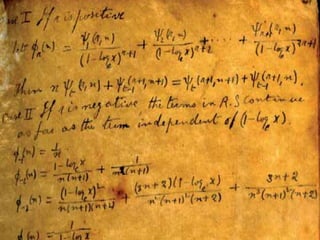 Case I If r is positive
let ϕ_r(n) = ψ_1(r,n)/(1-log_e x)^{r+1} + ψ_2(r,n)/(1-log_e x)^{r+2} + ⋯ + /(1-log_e x)^{2r+1}
Then n ψ_t(r,n) + ψ_{t-1}(r+1,n+1) = ψ_t(r+1,n+1) + ψ_{t-1}(r+1,n).
Case II If r is negative the terms in R.S continue
as far as the term independent of (1-log_e x).
ϕ_{-1}(n) = 1/n
ϕ_{-2}(n) = (1-log x)/n(n+1) + 1/n²(n+1)
ϕ_{-3}(n) = (1-log_e x)²/n(n+1)(n+2) + (3n+2)(1-log_e x)/n²(n+1)²(n+2) + (3n+2)/n³(n+1)²(n+2)
(n) = 1/(1-log x)